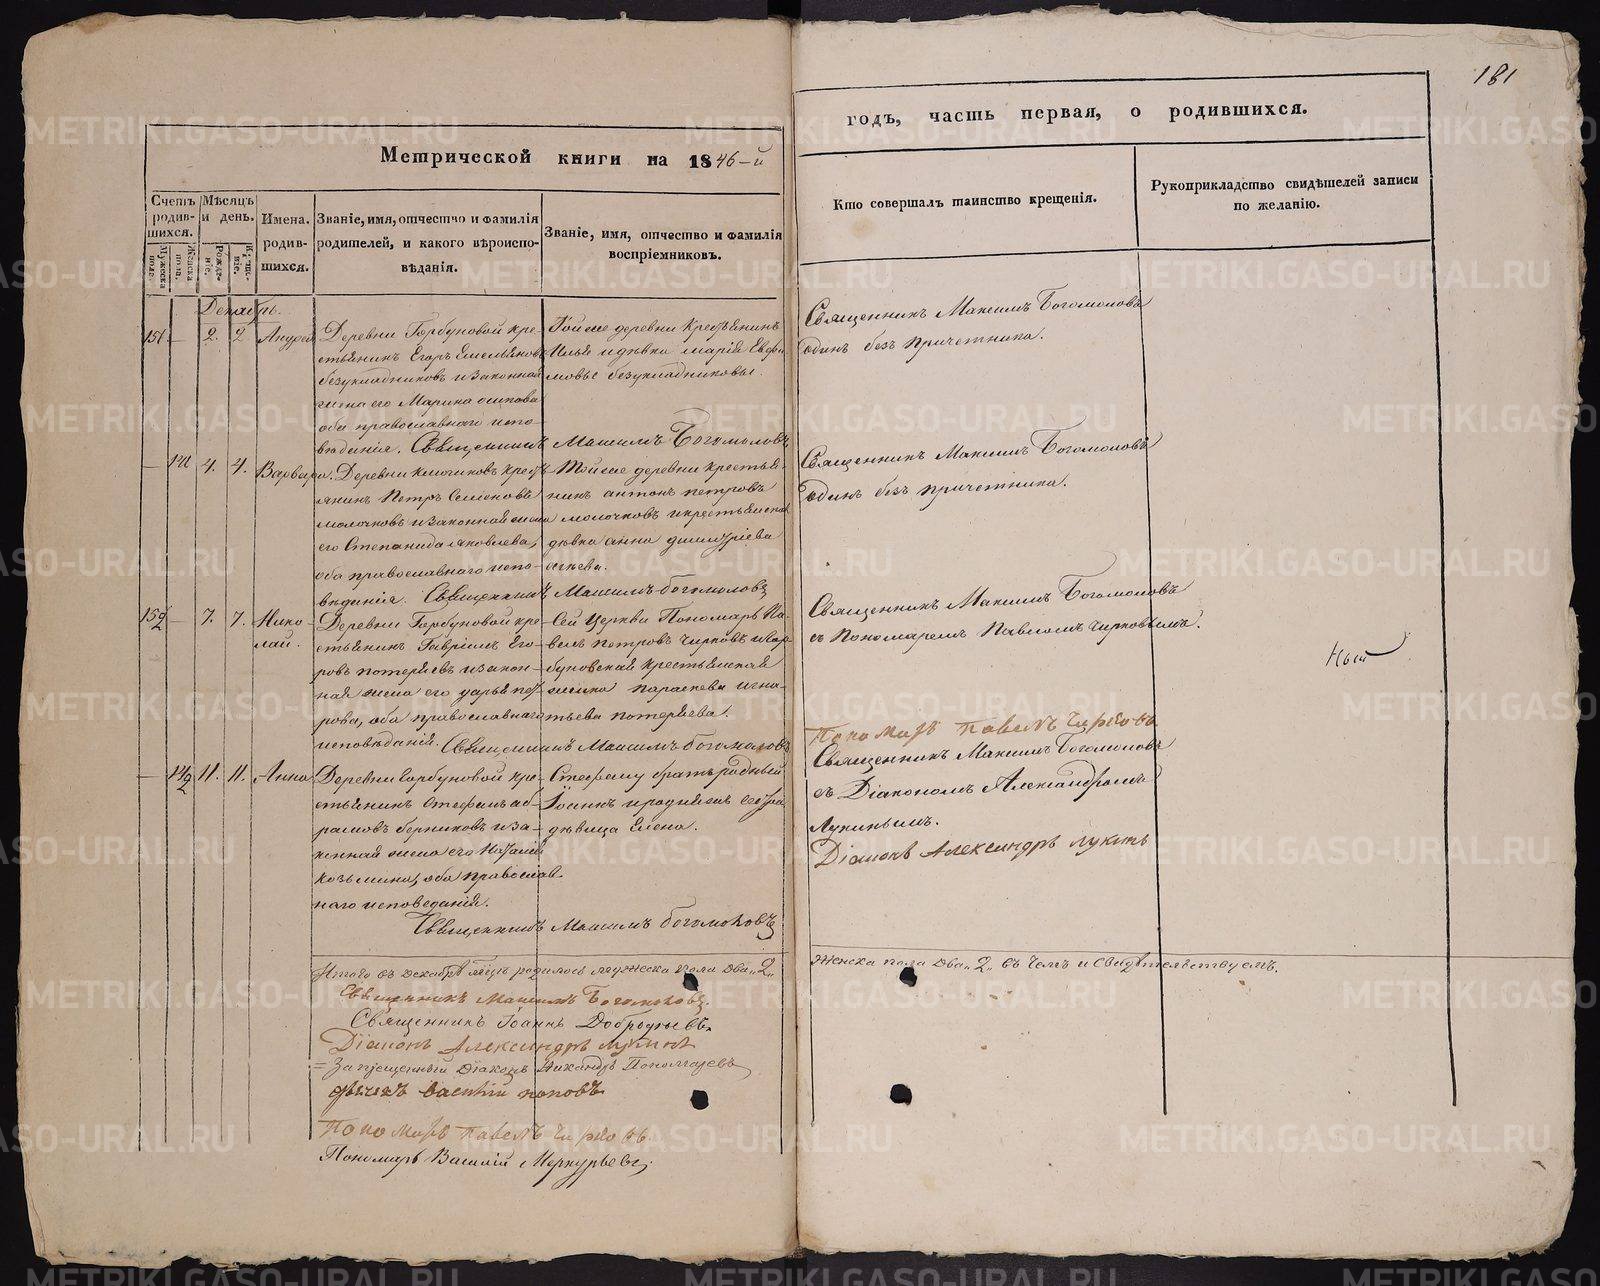 181
Метрической книги на 1846-й
годъ, часть первая, о родившихся.
Счетъ родив-шихся.
Мужеска пола.
Женска пола.
Мѣсяцъ и день.
Рожде-нiе.
Креще-нiе.
Имена. родив-шихся.
Званiе, имя, отчество и фамилiя родителей, и какого вѣроиспо-вѣданiя.
Званiе, имя, отчество и фамилiя воспрiемниковъ.
Кто совершалъ таинство крещенiя.
Рукоприкладство свидѣтелей записи по желанiю.
Декабрь.
151. — 2. 2 Андрей
Деревни Горбуновой кре-
стьянинъ Егоръ Емельяновъ
безукладниковъ и законная
жена его Марина осипова
оба православнаго испо-
вѣданiя. Священникъ Максимъ Богомоловъ
Той же деревни крестьянинъ
Илья и дѣвка марiя Евфи
мовы безукладниковы.
Священникъ Максимъ Богомоловъ
одинъ безъ причетника.
— 141 4. 4. Варвара.
Деревни ключиковъ крест-
янинъ Петръ Семеновъ
молочковъ и законная жена
его Степанида яковлева,
оба православнаго испо-
вѣданiя. Священникъ Максимъ богомоловъ
Той же деревни крестья-
нинъ антонъ петровъ
молочковъ и крестьянская
дѣвка анна
Священникъ Максимъ Богомоловъ
одинъ безъ причетника.
152 — 7. 7. Нико-
лай.
Деревни Горбуновой кре-
стьянинъ Гаврiилъ Его-
ровъ потеряевъ и закон-
ная жена его дарья пет-
рова, оба православнаго
исповѣданiя. Священникъ Максимъ богомоловъ
Сей Церкви Пономарь Па-
велъ петровъ Чирковъ и гор-
буновская крестьянская
жинка параскева игна-
тьева потеряева.
Священникъ Максимъ Богомоловъ
съ Пономаремъ Павломъ Чирковымъ.
Пономарь павелъ Чирковъ
— 142 11. 11. Анна
Деревни Горбуновой кре-
стьянинъ Стефанъ аб-
рамовъ берниковъ и за-
конная жена его Наталiя
козьмина, оба православ-
наго исповеданiя.
Священникъ Максимъ богомоловъ
Стефану братъ родный
Iоаннъ и родная сестра
дѣвица Елена.
Священникъ Максимъ Богомоловъ
съ Дiакономъ Александромъ
Лукинымъ.
Дiаконъ Александръ лукинъ
Итого въ декабрѣ мцѣ родилось мужеска пола два „2„
женска пола два „2„ въ чемъ и свидѣтельствуемъ.
Священникъ Максимъ Богомоловъ.
Священникъ Iоаннъ
Дiаконъ Александръ лукинъ
= Запрещенный Дiаконъ Никандръ Пономаревъ
дьячекъ василiй поповъ
Пономарь павелъ Чирковъ.
Пономарь Василiй Меркурьевъ.